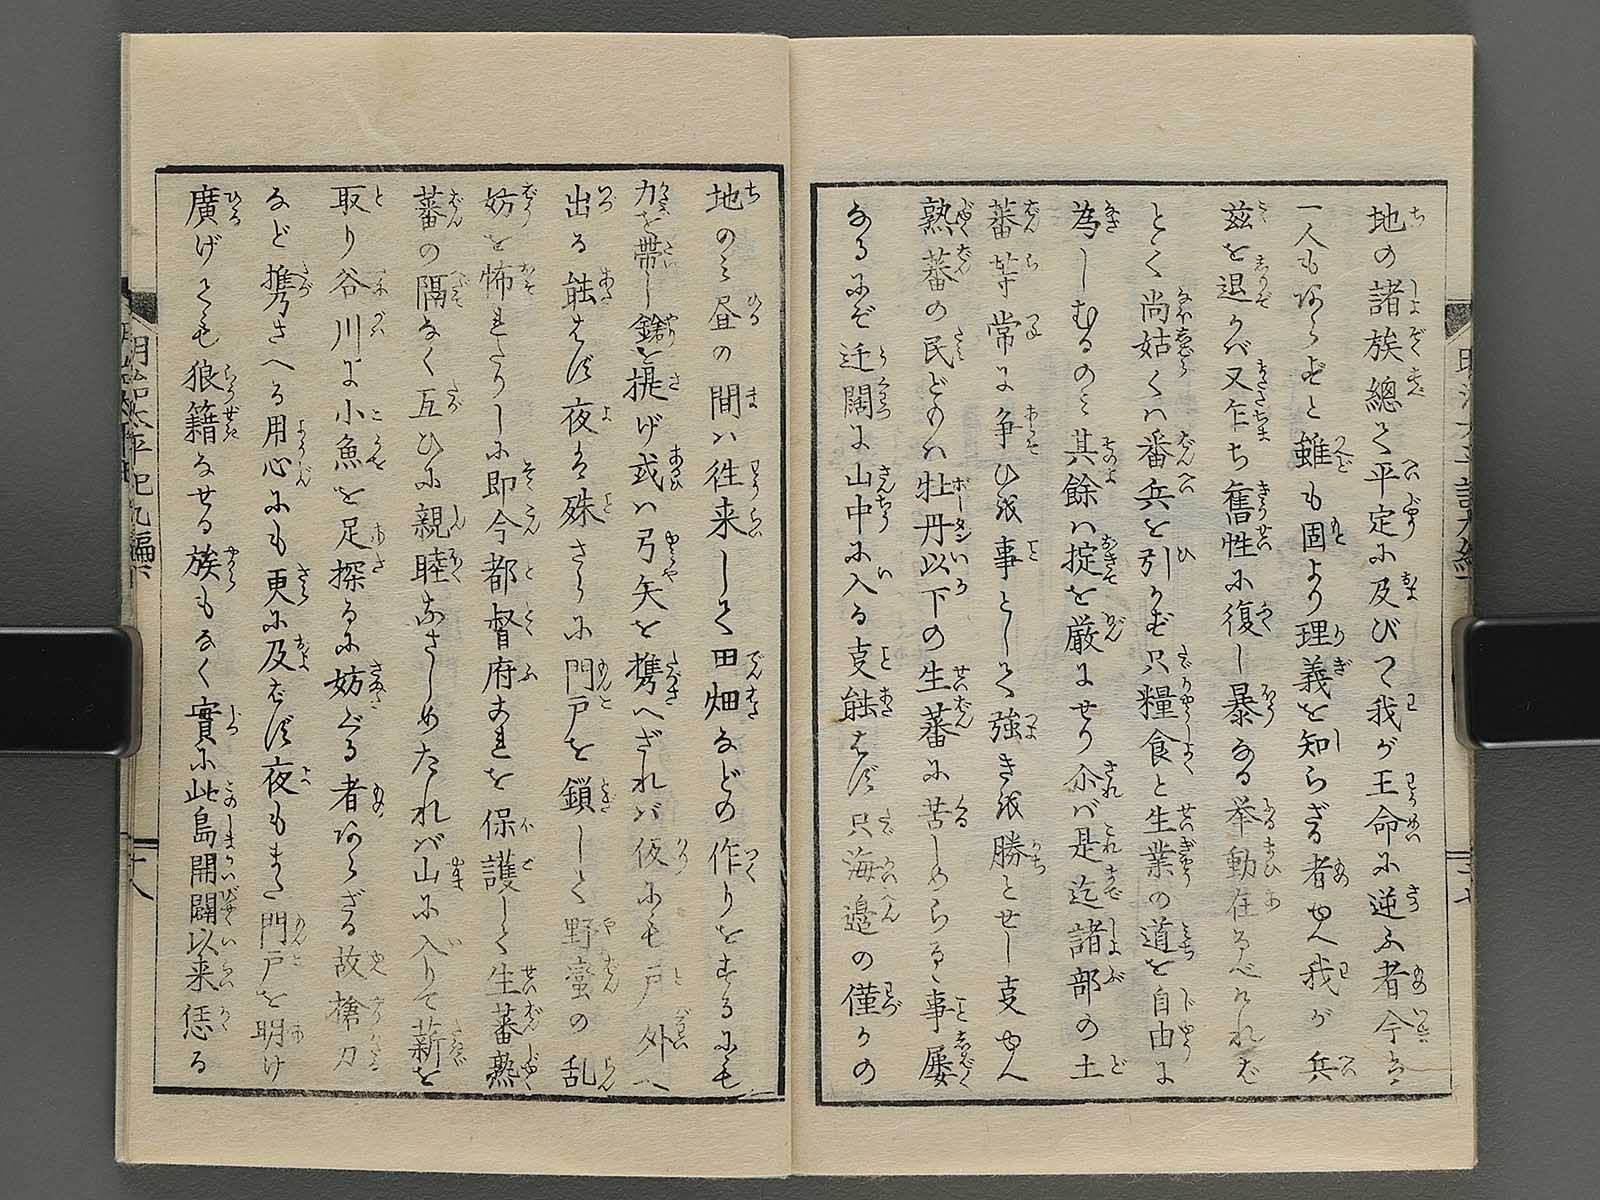 地の諸族總て平定に及びて我が王命に逆ふ者今は
一人もあらずと雖も固より理義を知らざる者ゆへ我が兵
茲を退かバ又乍ち舊性に復し暴なる挙動在るべければ
とて尚姑くハ番兵を引かず只糧食と生業の道を自由に
為しむるのミ其餘ハ掟を厳にせり尒バ是迄諸部の土
蕃等常に争ひ或事として強き或勝とせし支ゆへ
熟蕃の民どもハ牡丹以下の生蕃に苦しめらるゝ事屡
なるにぞ迂闊に山中に入る支能はず只海邉の僅かの
地のミ昼の間ハ往来して田畑などの作りをするにも
力を帯し鎗を提げ或ハ弓矢を携へざれバ仮にも戸外へ
出る能はず夜は殊さらに門戸を鎖して野蛮の乱
妨を怖れたりしに即今都督府これを保護して生蕃熟
蕃の隔なく互ひに親睦なさしめたれバ山に入りて薪を
取り谷川に小魚を足探るに妨ぐる者あらざる故槍刀
など携さへる用心にも更に及ばず夜もまた門戸を明け
廣げても狼籍なせる族もなく實に此島開闢以来恁る
明治太平記九編下
十八